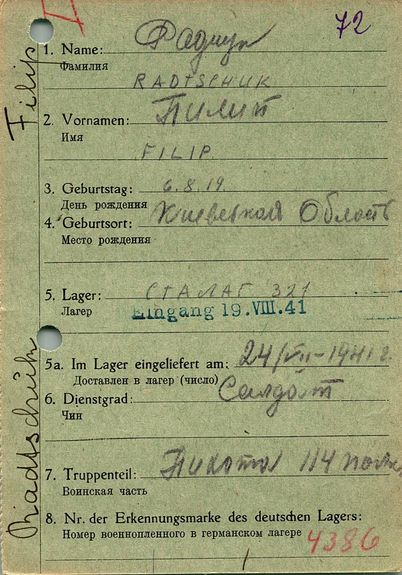 72
1. Name: Радчук
Фамилия
RADTSCHUK
2. Vornamen: Пилип
Имя
FILIP
3. Geburtstag: 6.8.19.
День рождения
4. Geburtsort: Киевская Область
Место рождения
5. Lager: СТАЛАГ 321
Лагер
Eingang 19. VIII. 41
5a. Im Lager eingeliefert am: 24/VII-1941 г.
Доставлен в лагер (число)
6. Dienstgrad: Салдат
Чин
7. Truppenteil: Пихота 114 полк
Воинская часть
8. Nr. der Erkennungsmarke des deutschen Lagers:
Номер военнопленного в германском лагере 4386
Radtschuk Filip